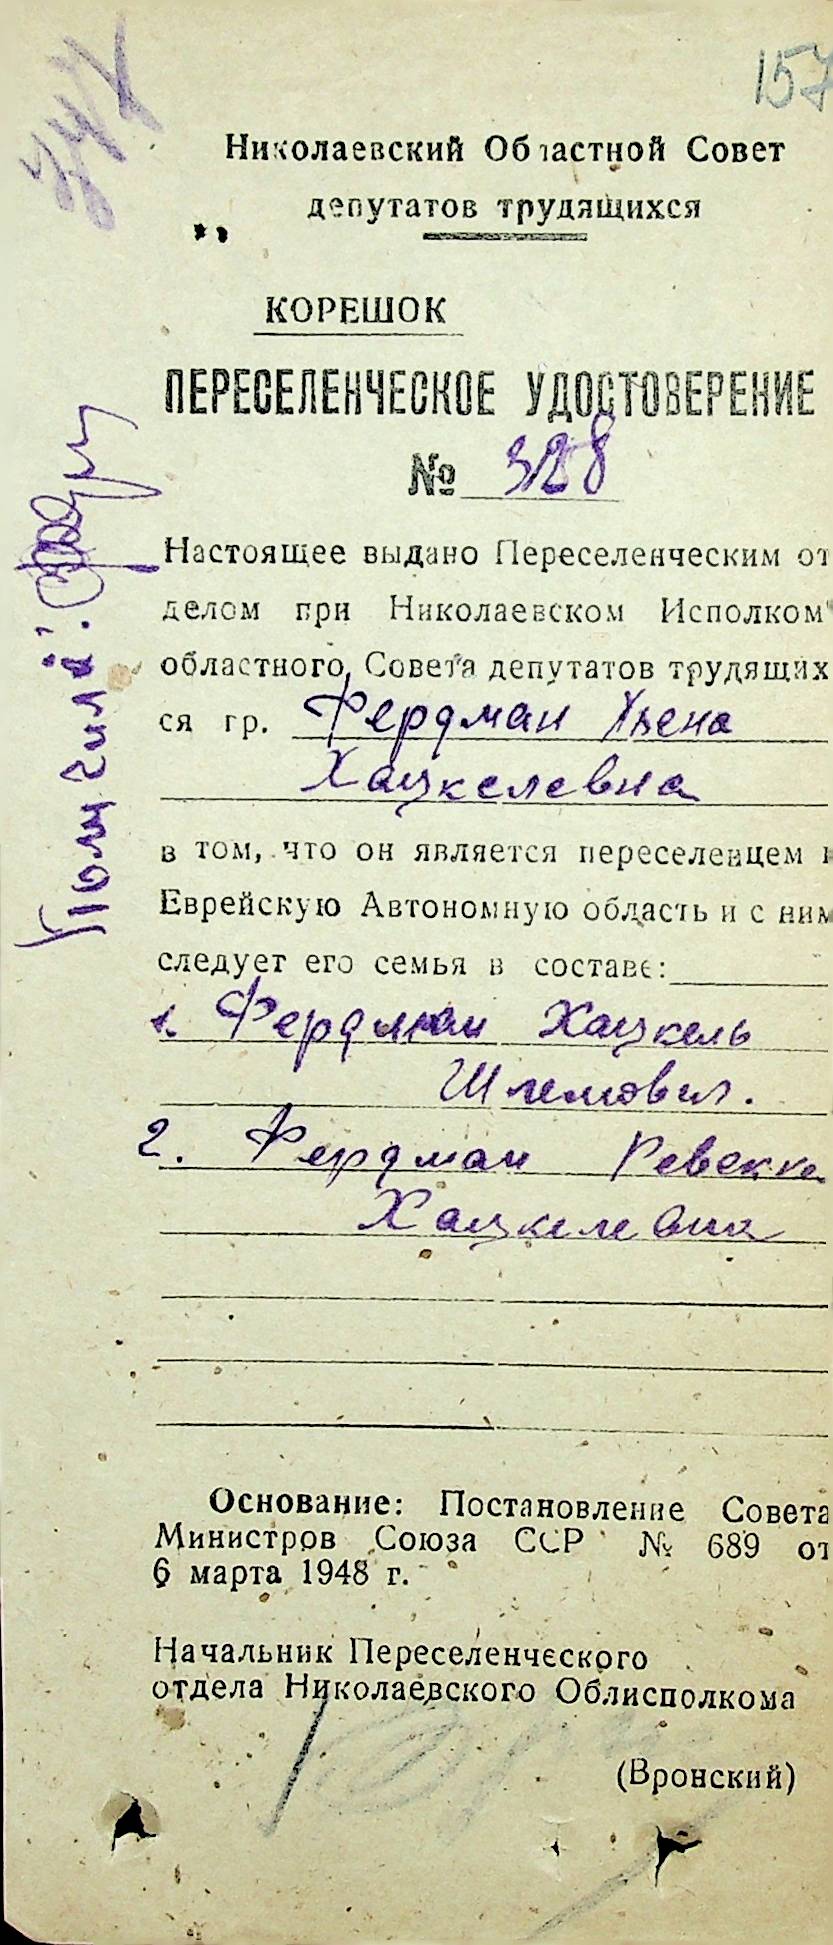 157
Николаевский Областной Совет
депутатов трудящихся
КОРЕШОК
ПЕРЕСЕЛЕНЧЕСКОЕ УДОСТОВЕРЕНИЕ
№ 328
Настоящее выдано Переселенческим от
делом при Николаевском Исполком
областного Совета депутатов трудящих
ся гр. Фердман
Хацкелевна
в том, что он является переселенцем в
Еврейскую Автономную область и с ним
следует его семья в составе:
1. Фердман Хацкель
Шлемович.
2. Фердман Ревекка
Хацкелевна
Основание: Постановление Совета
Министров Союза ССР № 689 от
6 марта 1948 г.
Начальник Переселенческого
отдела Николаевского Облисполкома
(Вронский)
Получила: